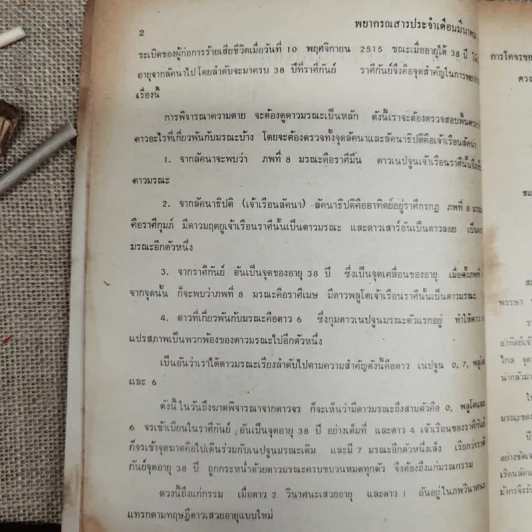 2
พยากรณสารประจำเดือนมีนาคม
ระเบิดของผู้ก่อการร้ายเสียชีวิตเมื่อวันที่ 10 พฤศจิกายน 2515 ขณะเมื่ออายุได้ 38 ปี
อายุจากลัคนาไปโดยลำดับจะมาครบ 38 ปีที่ราศีกันย์ ราศีกันย์จึงคือจุดสำคัญในการพยากรณ์
เรื่องนี้
การพิจารณาความตาย จะต้องดูดาวมรณะเป็นหลัก ดังนี้เราจะต้องตรวจสอบ
ดาวอะไรที่เกี่ยวพันกับมรณะบ้าง โดยจะต้องตรวจทั้งจุดลัคนาและลัคนาธิปติคือเจ้าเรือนลัคนา
1. จากลัคนาจะพบว่า ภพที่ 8 มรณะคือราศีมีน ดาวเนปจูนเจ้าเรือนราศีนั้น
ดาวมรณะ
2. จากลัคนาธิปติ (เจ้าเรือนลัคนา) ลัคนาธิปติคืออาทิตย์อยู่ราศีกรกฎ ภพที่ 8 มรณะ
คือราศีกุมภ์ มีดาวมฤตยูเจ้าเรือนราศีนั้นเป็นดาวมรณะ และดาวเสาร์อันเป็นดาวลอย
มรณะอีกตัวหนึ่ง
3. จากราศีกันย์ อันเป็นจุดของอายุ 38 ปี ซึ่งเป็นจุดเคลื่อนของอายุ เมื่อตั้งภพที่
จากจุดนั้น ก็จะพบว่าภพที่ 8 มรณะคือราศีเมษ มีดาวพลูโตเจ้าเรือนราศีนั้นเป็นดาวมรณะ
4. ดาวที่เกี่ยวพันกับมรณะคือดาว 6 ซึ่งกุมดาวเนปจูนมรณะตัวแรกอยู่ ทำให้ดาว
แปรสภาพเป็นพวกพ้องของดาวมรณะไปอีกตัวหนึ่ง
เป็นอันว่าเราได้ดาวมรณะเรียงลำดับไปตามความสำคัญดังนี้คือดาว เนปจูน 0, 7, พลูโต
และ 6
ดังนี้ในวันถึงฆาตพิจารณาจากดาวจร ก็จะเห็นว่ามีดาวมรณะถึงสามตัวคือ 0, พลูโตและ
6 จรเข้าเบียนในราศีกันย์ อันเป็นจุดอายุ 38 ปี อย่างเต็มที่ และดาว 4 เจ้าเรือนของราศีกันย์
ก็จรเข้าจุดฆาตคือไปเดินร่วมกับเนปจูนมรณะเดิม และมี 7 มรณะอีกตัวหนึ่งเล็ง เรียกว่าราศี
กันย์จุดอายุ 38 ปี ถูกกระหน่ำด้วยดาวมรณะครบขบวนหมดทุกตัว จึงต้องถึงแก่มรณกรรม
ดวงนี้ถึงแก่กรรม เมื่อดาว 2 วินาศนะเสวยอายุ และดาว 1 อันอยู่ในภพวินาศนะ
แทรกตามทฤษฎีดาวเสวยอายุแบบใหม่
การโคจรของ